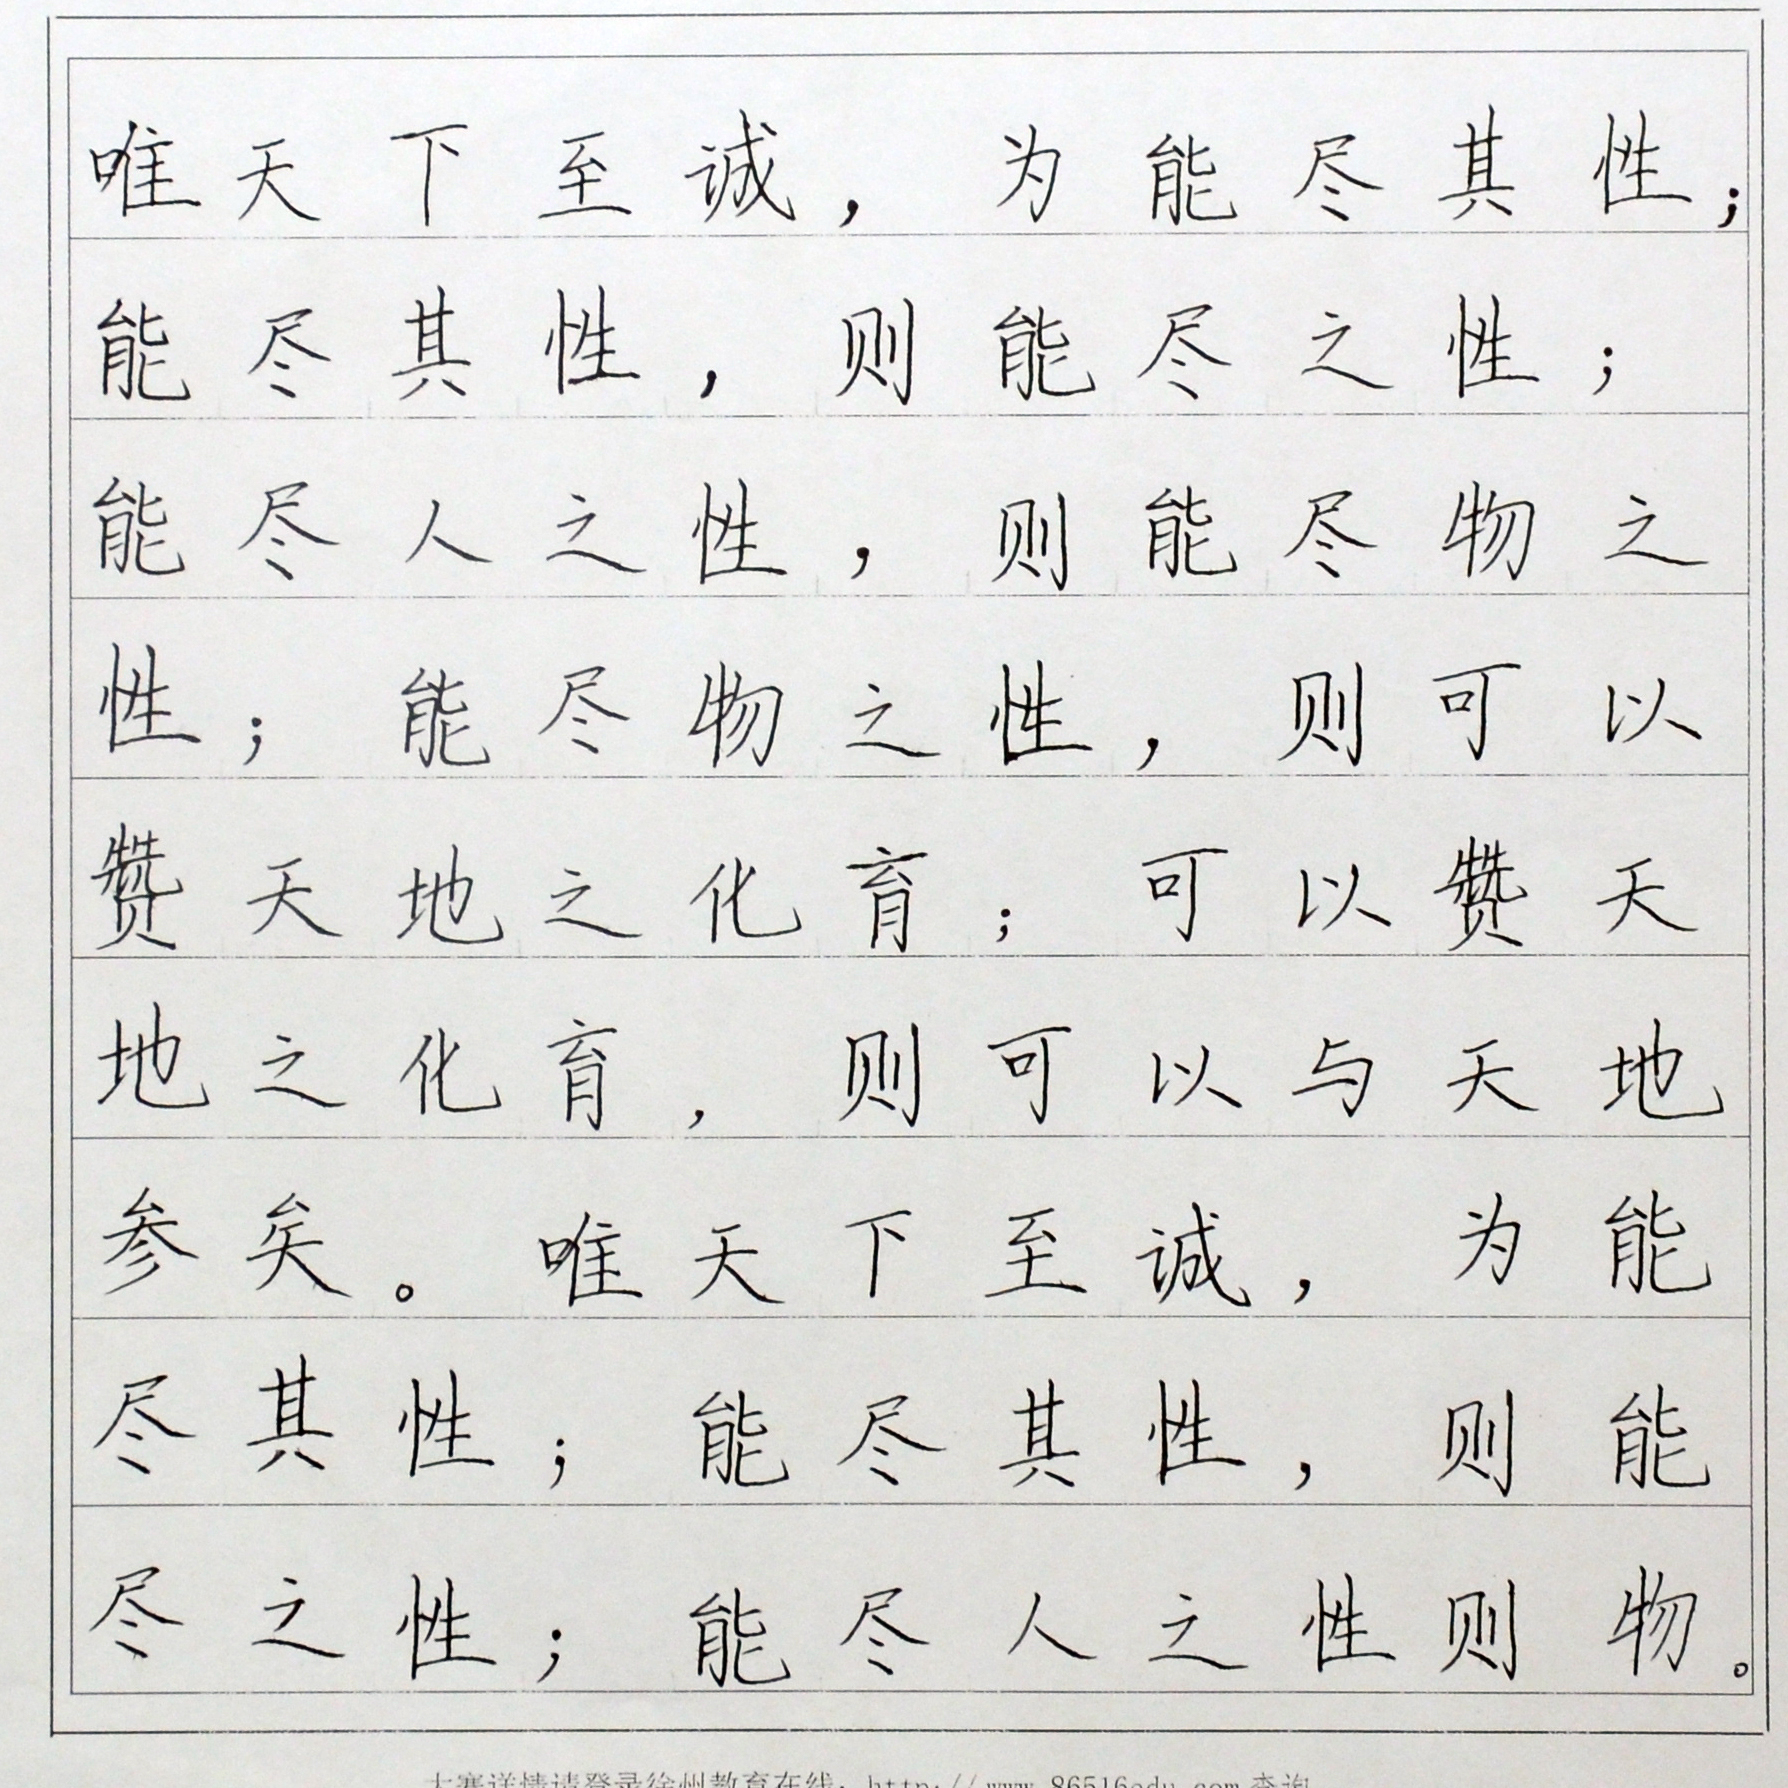 唯天下至诚，为能尽其性；
能尽其性，则能尽之性；
能尽人之性，则能尽物之
性；能尽物之性，则可以
赞天地之化育；可以赞天
地之化育，则可以与天地
参矣。唯天下至诚，为能
尽其性；能尽其性，则能
尽之性；能尽人之性则物。
大赛详情请登录徐州教育在线：http://www.86516edu.com查询